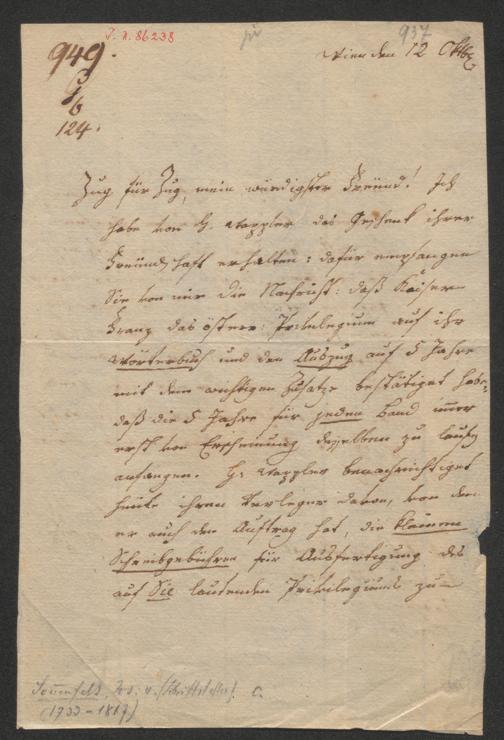 I. N. 86238
937
949.
G/6
124.
Wien den 12 Oktb
Zug für Zug, mein würdigster Freünd! Ich
habe von H. Wappler das Geschenk ihrer
Freündschaft erhalten: dafür empfangen
Sie von mir die Nachricht: daß Kaiser
Franz das österr: Privilegium auf ihr
Wörterbuch und den Auszug auf 5 Jahre
mit dem wichtigen Zusatze bestätiget habe,
daß die 5 Jahre für jeden Band immer
erst von Erscheinung desselben zu laufen
anfangen. H: Wappler benachrichtiget
heute ihren Verleger davon, von dem
er auch den Auftrag hat, die kleinen
Schreibgebühren für Ausfertigung des
auf Sie lautenden Privilegiums zu
Sonnenfels, Jos. v. (Schriftsteller)
(1733-1817)